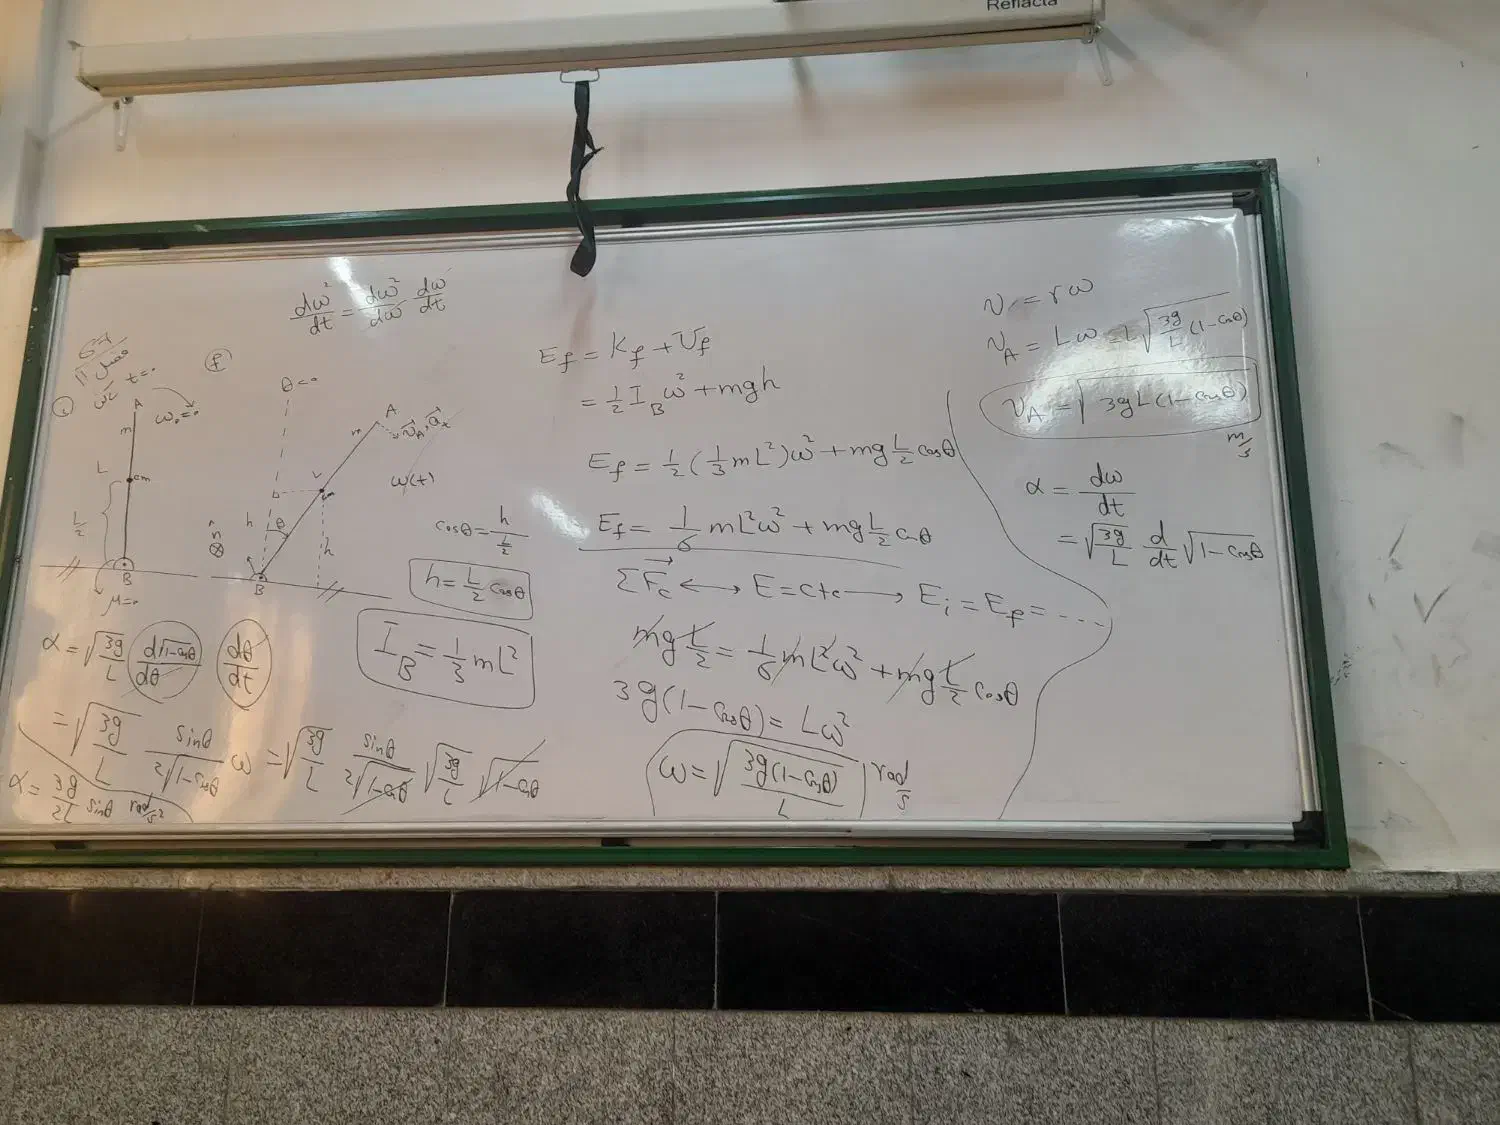 Reflecta
dω²/dt = dω²/dω dω/dt
فصل ۱۱
t=0
A
ω₀=0
m
L
cm
L/2
B
μ=0
f
θ=0
A
m
v⃗_A, a⃗_t
ω(t)
h
θ
h
n
⊗
B
cosθ = h/(L/2)
h = L/2 cosθ
I_B = 1/3 mL²
α = √(3g/L) (d√(1-cosθ)/dθ) (dθ/dt)
= √(3g/L) sinθ/(2√(1-cosθ)) ω = √(3g/L) sinθ/(2√(1-cosθ)) √(3g/L) √(1-cosθ)
α = 3g/2L sinθ rad/s²
E_f = K_f + U_f
= 1/2 I_B ω² + mgh
E_f = 1/2 (1/3 mL²)ω² + mg L/2 cosθ
E_f = 1/6 mL²ω² + mg L/2 cosθ
ΣF⃗_c ⟷ E = cte ⟶ E_i = E_f = ....
mg L/2 = 1/6 mL²ω² + mg L/2 cosθ
3g(1-cosθ) = Lω²
ω = √(3g(1-cosθ)/L) rad/s
v = rω
v_A = Lω = L√(3g/L (1-cosθ))
v_A = √(3gL(1-cosθ))
m/s
α = dω/dt
= √(3g/L) d/dt √(1-cosθ)